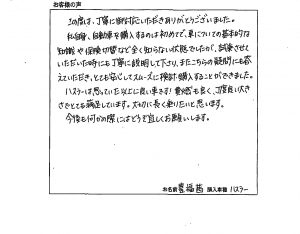 お客様の声
この度は、丁寧に御対応いただきありがとうございました。
私自身、自動車を購入するのは初めてで、車についての基本的な
知識や保険切替など全く知らない状態でしたが、試乗させて
いただいた時にも丁寧に説明して下さり、またこちらの疑問にも答
えていただき、とても安心してスムーズに検討・購入することができました。
ハスラーは思っていた以上に良い車です！室内も広く、丁度良い大き
さでとても満足しています。大切に長く乗りたいと思います。
今後も何かの際にはどうぞ宜しくお願いします。
お名前 購入車種 ハスラー